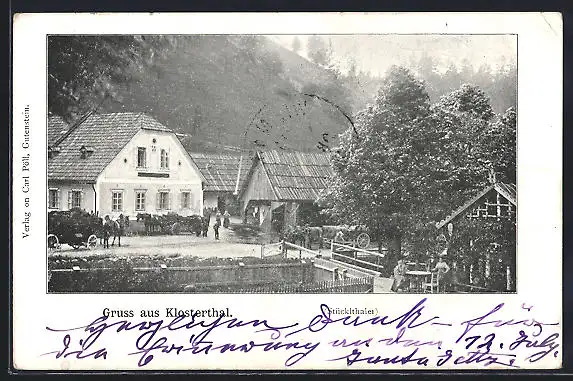 Verlag on Carl Pöll, Gutenstein.
Gruss aus Klosterthal.
(Stücklthaler)
Herzlichen Dank - für
die Erinnerung an den 12. July.